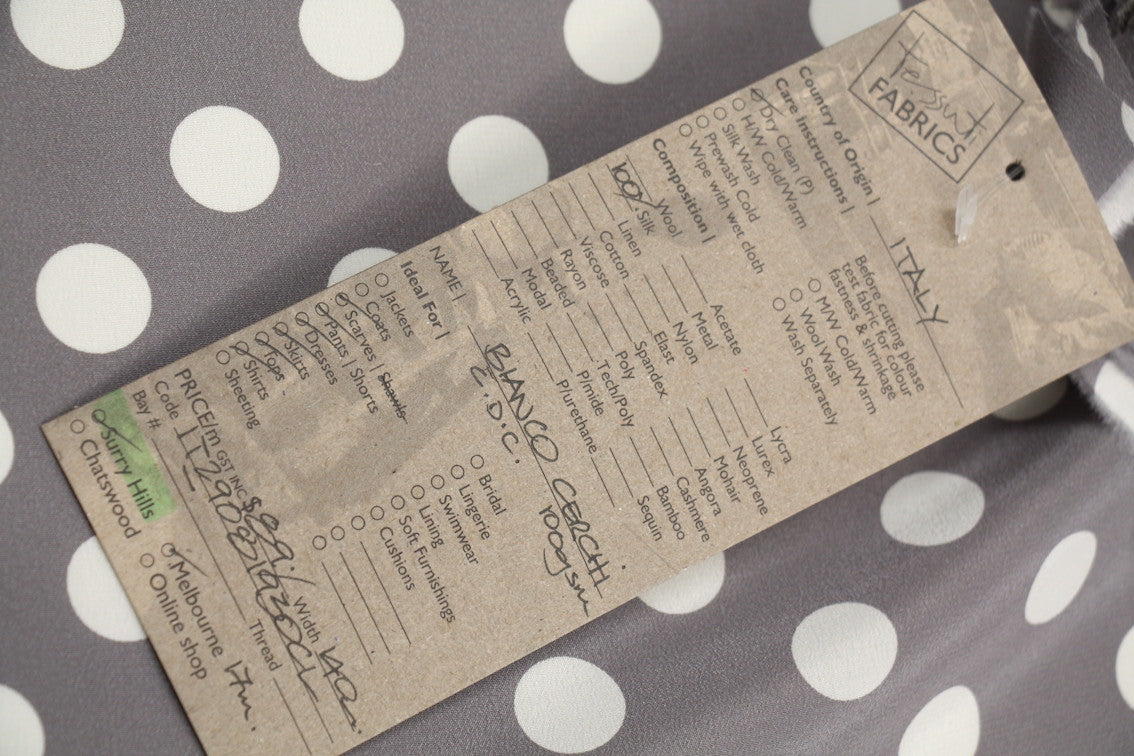 tessuti
FABRICS
Country of Origin | ITALY
Care Instructions |
Dry Clean (P)
H/W Cold/Warm
Silk Wash
Prewash Cold
Wipe with wet cloth
Before cutting please
test fabric for colour
fastness & shrinkage
M/W Cold/Warm
Wool Wash
Wash Separately
Composition |
Wool
100% Silk
Linen
Cotton
Viscose
Rayon
Beaded
Modal
Acrylic
Acetate
Metal
Nylon
Elast
Spandex
Poly
Tech/Poly
P/mide
P/urethane
Lycra
Lurex
Neoprene
Mohair
Angora
Cashmere
Bamboo
Sequin
NAME | BIANCO CERCHI
C.D.C. 100gsm
Ideal For |
Jackets
Coats
Scarves | Shawls
Pants | Shorts
Dresses
Skirts
Tops
Shirts
Sheeting
Bridal
Lingerie
Swimwear
Lining
Soft Furnishings
Cushions
PRICE/m GST INC Width 140
Code
Thread
Bay #
Surry Hills
Chatswood
Melbourne 17m.
Online shop